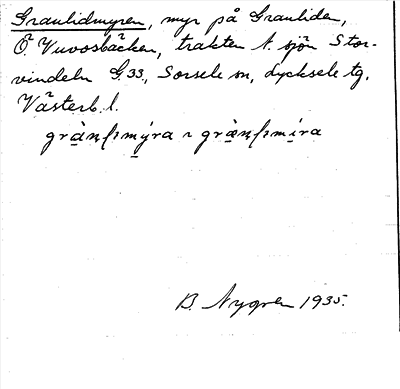 Granlidmyren, myr på Granliden,
Ö. Vuvosbäcken, trakten N. sjön Stor-
vindeln G. 33., Sorsele sn, Lycksele tg.
Västerb. l.
B. Nygren 1935.